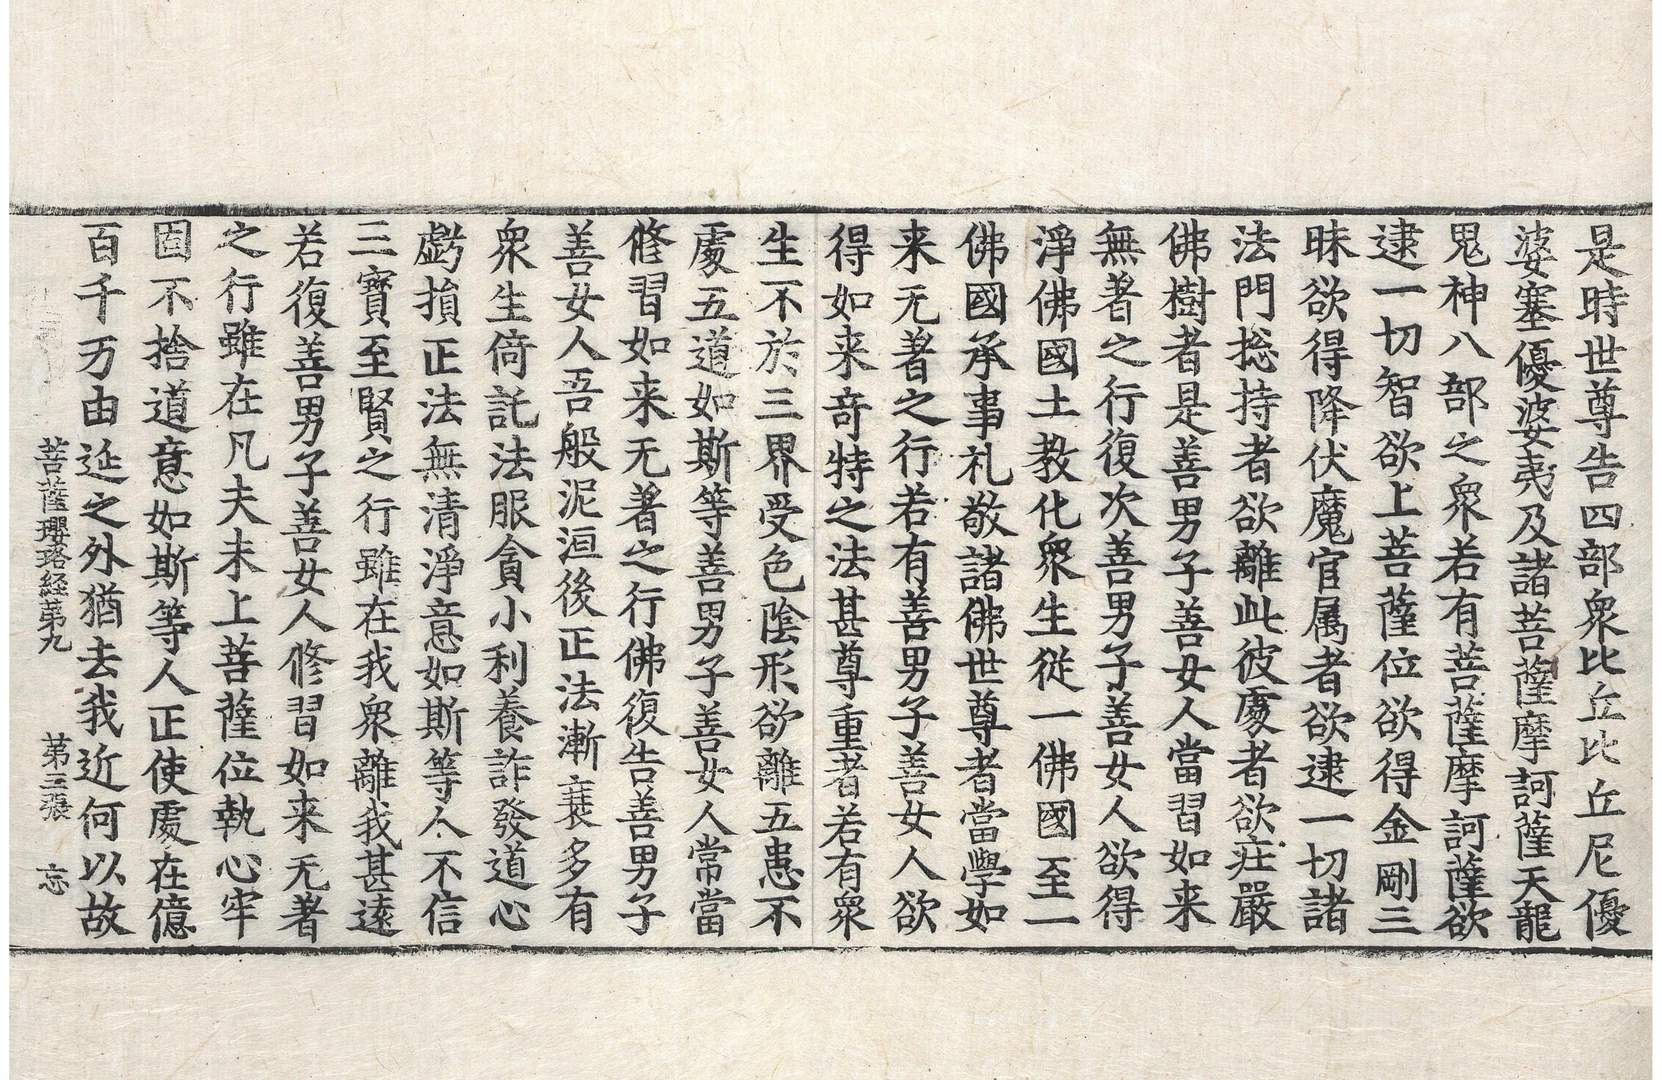 是時世尊告四部衆比丘比丘尼優
婆塞優婆夷及諸菩薩摩訶薩天龍
鬼神八部之衆若有菩薩摩訶薩欲
逮一切智欲上菩薩位欲得金剛三
昧欲得降伏魔官属者欲逮一切諸
法門捴持者欲離此彼處者欲莊嚴
佛樹者是善男子善女人當習如来
無著之行復次善男子善女人欲得
淨佛國土教化衆生従一佛國至一
佛國承事礼敬諸佛世尊者當學如
来无著之行若有善男子善女人欲
得如来奇特之法甚尊重者若有衆
生不於三界受色陰形欲離五恚不
處五道如斯等善男子善女人常當
修習如来无著之行佛復告善男子
善女人吾般泥洹後正法漸衰多有
衆生倚託法服貪小利養詐發道心
虧損正法無清淨意如斯等人不信
三寶至賢之行雖在我衆離我甚遠
若復善男子善女人修習如来无著
之行雖在凡夫未上菩薩位執心牢
固不捨道意如斯等人正使處在億
百千万由延之外猶去我近何以故
菩薩瓔珞経苐九　苐三張　忘